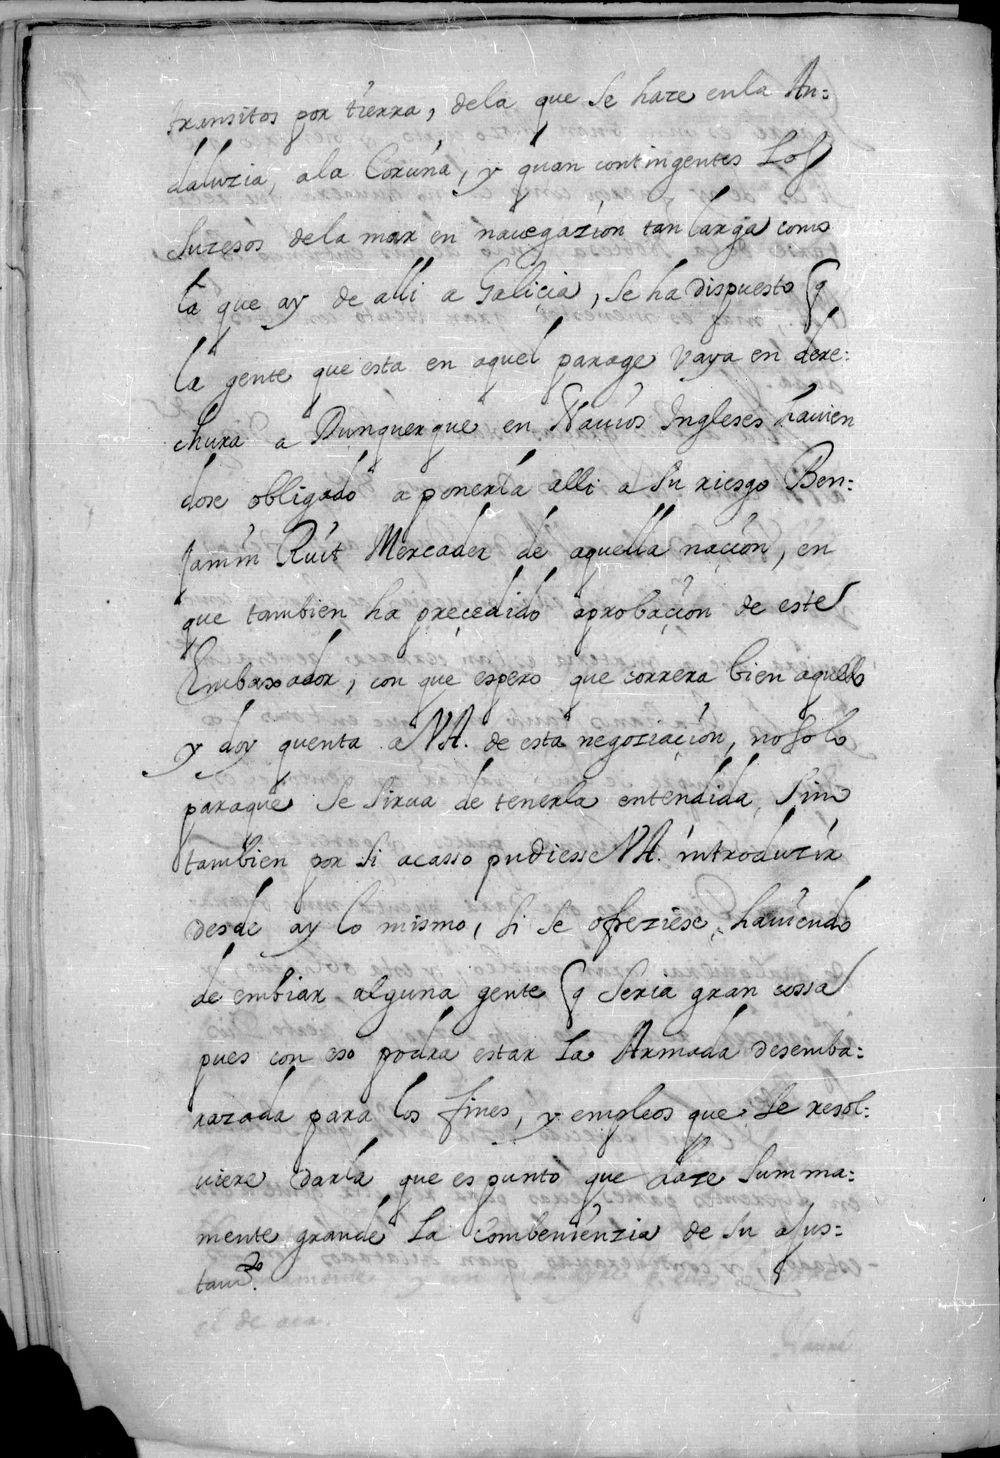 transitos por tierra, dela que se haze enla An=
daluzia, ala Coruña, y quan contingentes Los
suzesos dela mar en nauegazion tan larga como
la que ay de alli a Galiçia, se ha dispuesto q
la gente que esta en aquel parage vaya en dere=
chura a Dunquerque en Nauios Ingleses hauien
dose obligado a ponerla alli a su riesgo Ben=
Jamin Ruit Mercader de aquella naçion, en
que tambien ha preçedido aprobaçion de este
Embaxador, con que espero que correra bien aquello
y doy quenta a VA. de esta negoziaçion, no solo
paraque se sirua de tenerla entendida, sino
tambien por si acasso pudiesse VA. introduzir
desde ay lo mismo, si se ofreziese, hauiendo
de embiar alguna gente q seria gran cossa
pues con eso podra estar La Armada desemba=
razada para los fines, y empleos que se resol=
uiere darla que es punto que haze summa=
mente grande La combenienzia de su ajus=
tamto.